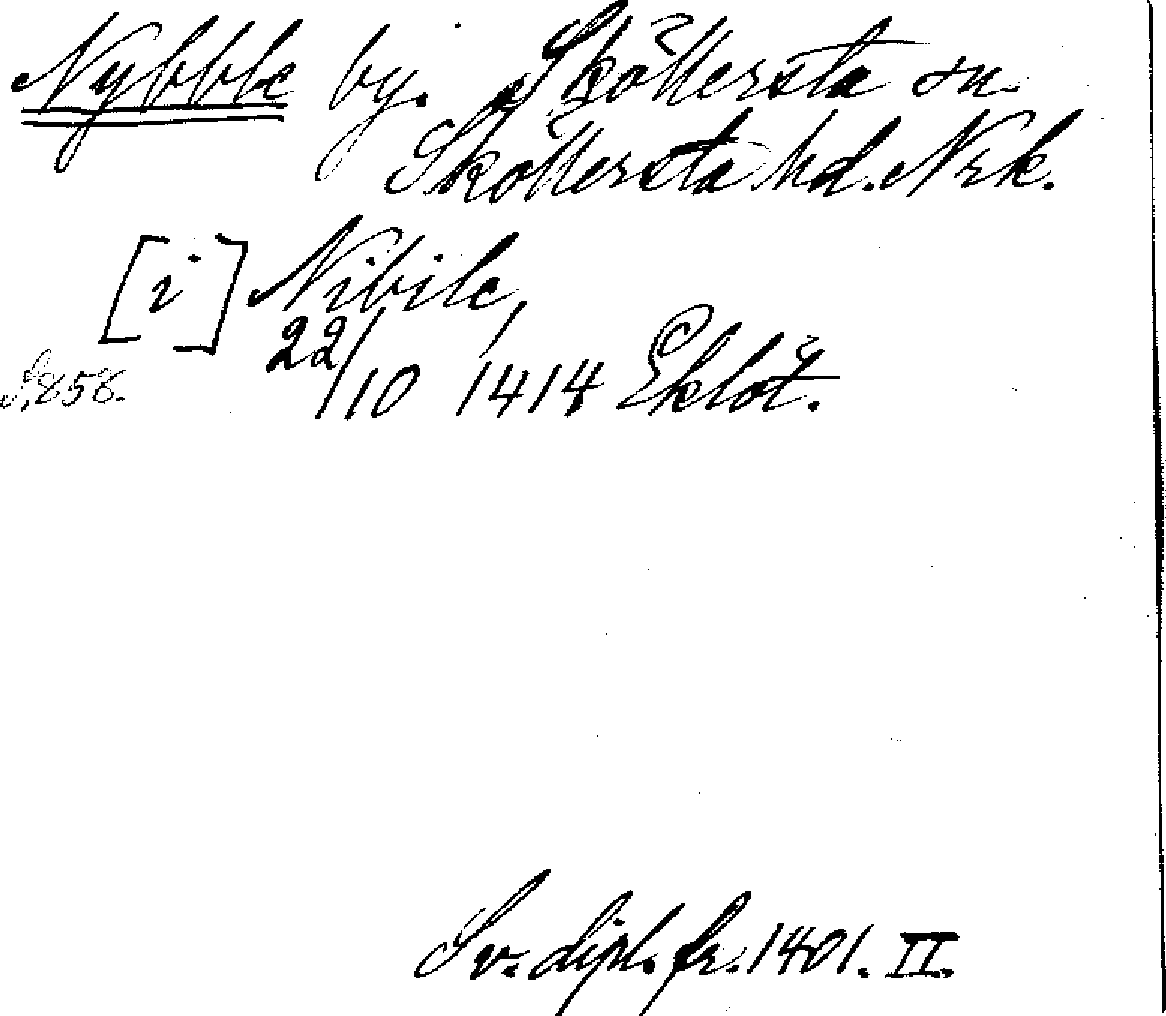 Nybble by. Sköllersta sn.
Sköllersta hd. Nrk.
[i] Nibile,
22/10 1414 Eklöt.
S. 858.
Sv. dipl. fr. 1401. II.